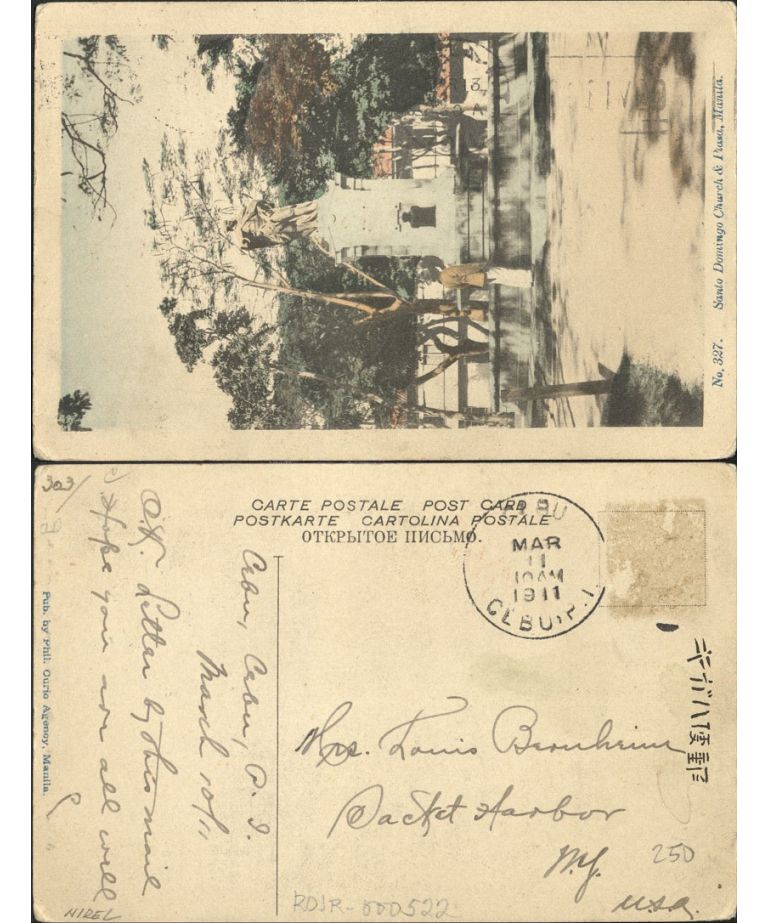 No. 327. Santo Domingo Church & Plasa, Manila.
303/
CARTE POSTALE POST CARD
POSTKARTE CARTOLINA POSTALE
ОТКРЫТОЕ ПИСЬМО.
CEBU
MAR
11
10AM
1911
CEBU, P.I.
Cebu, Cebu, P. I.
March 10/11
O.K. Letter by this mail
Hope you are all well
Pub. by Phil. Curio Agency, Manila.
Mrs. Louis Bernheim
Sacket Harbor
N.Y.
U.S.A.
250
RDJR-000522
NIREL